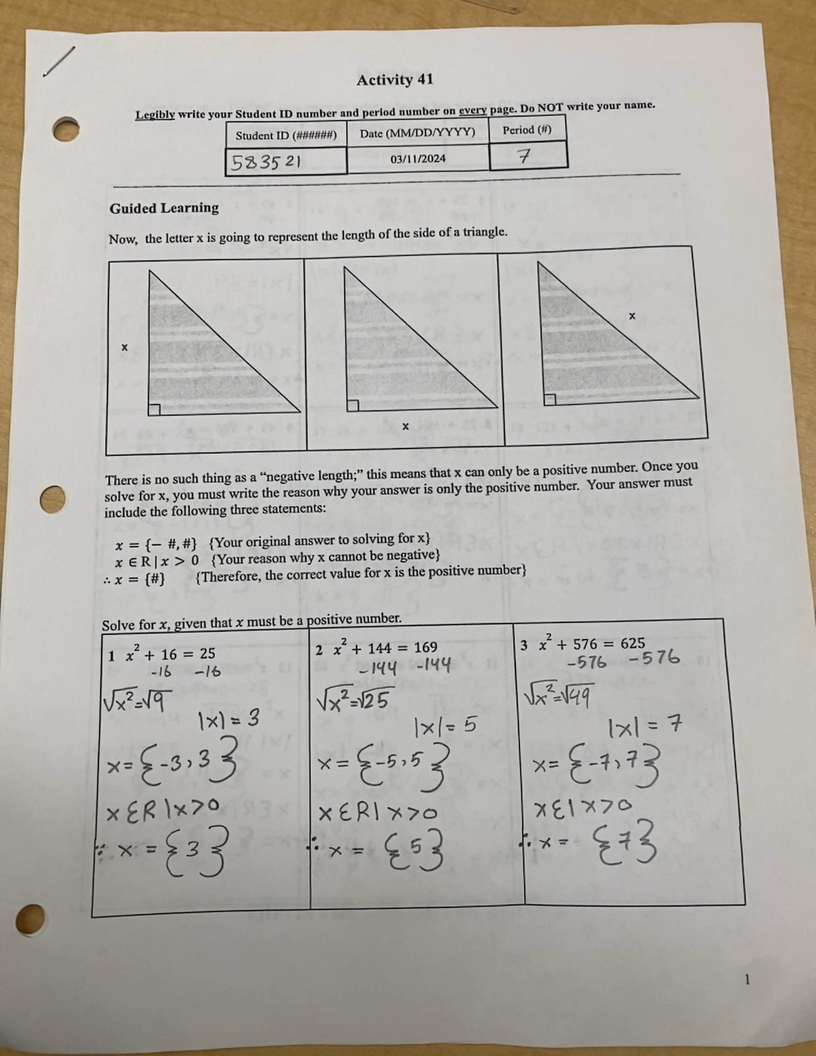 Activity 41
Legibly write your Student ID number and period number on every page. Do NOT write your name.
Student ID (######) Date (MM/DD/YYYY) Period (#)
583521 03/11/2024 7
Guided Learning
Now, the letter x is going to represent the length of the side of a triangle.
x
x
x
There is no such thing as a “negative length;” this means that x can only be a positive number. Once you
solve for x, you must write the reason why your answer is only the positive number. Your answer must
include the following three statements:
x = {− #, #} {Your original answer to solving for x}
x ∈ R | x > 0 {Your reason why x cannot be negative}
∴ x = {#} {Therefore, the correct value for x is the positive number}
Solve for x, given that x must be a positive number.
1 x² + 16 = 25
-16 -16
√x²=√9
|x| = 3
x= {-3,3}
x ∈R |x>0
∴ x = {3}
2 x² + 144 = 169
-144 -144
√x²=√25
|x|= 5
x= {-5,5}
x ∈R| x>0
∴ x = {5}
3 x² + 576 = 625
-576 -576
√x²=√49
|x| = 7
x= {-7,7}
x∈| x>0
∴ x = {7}
1